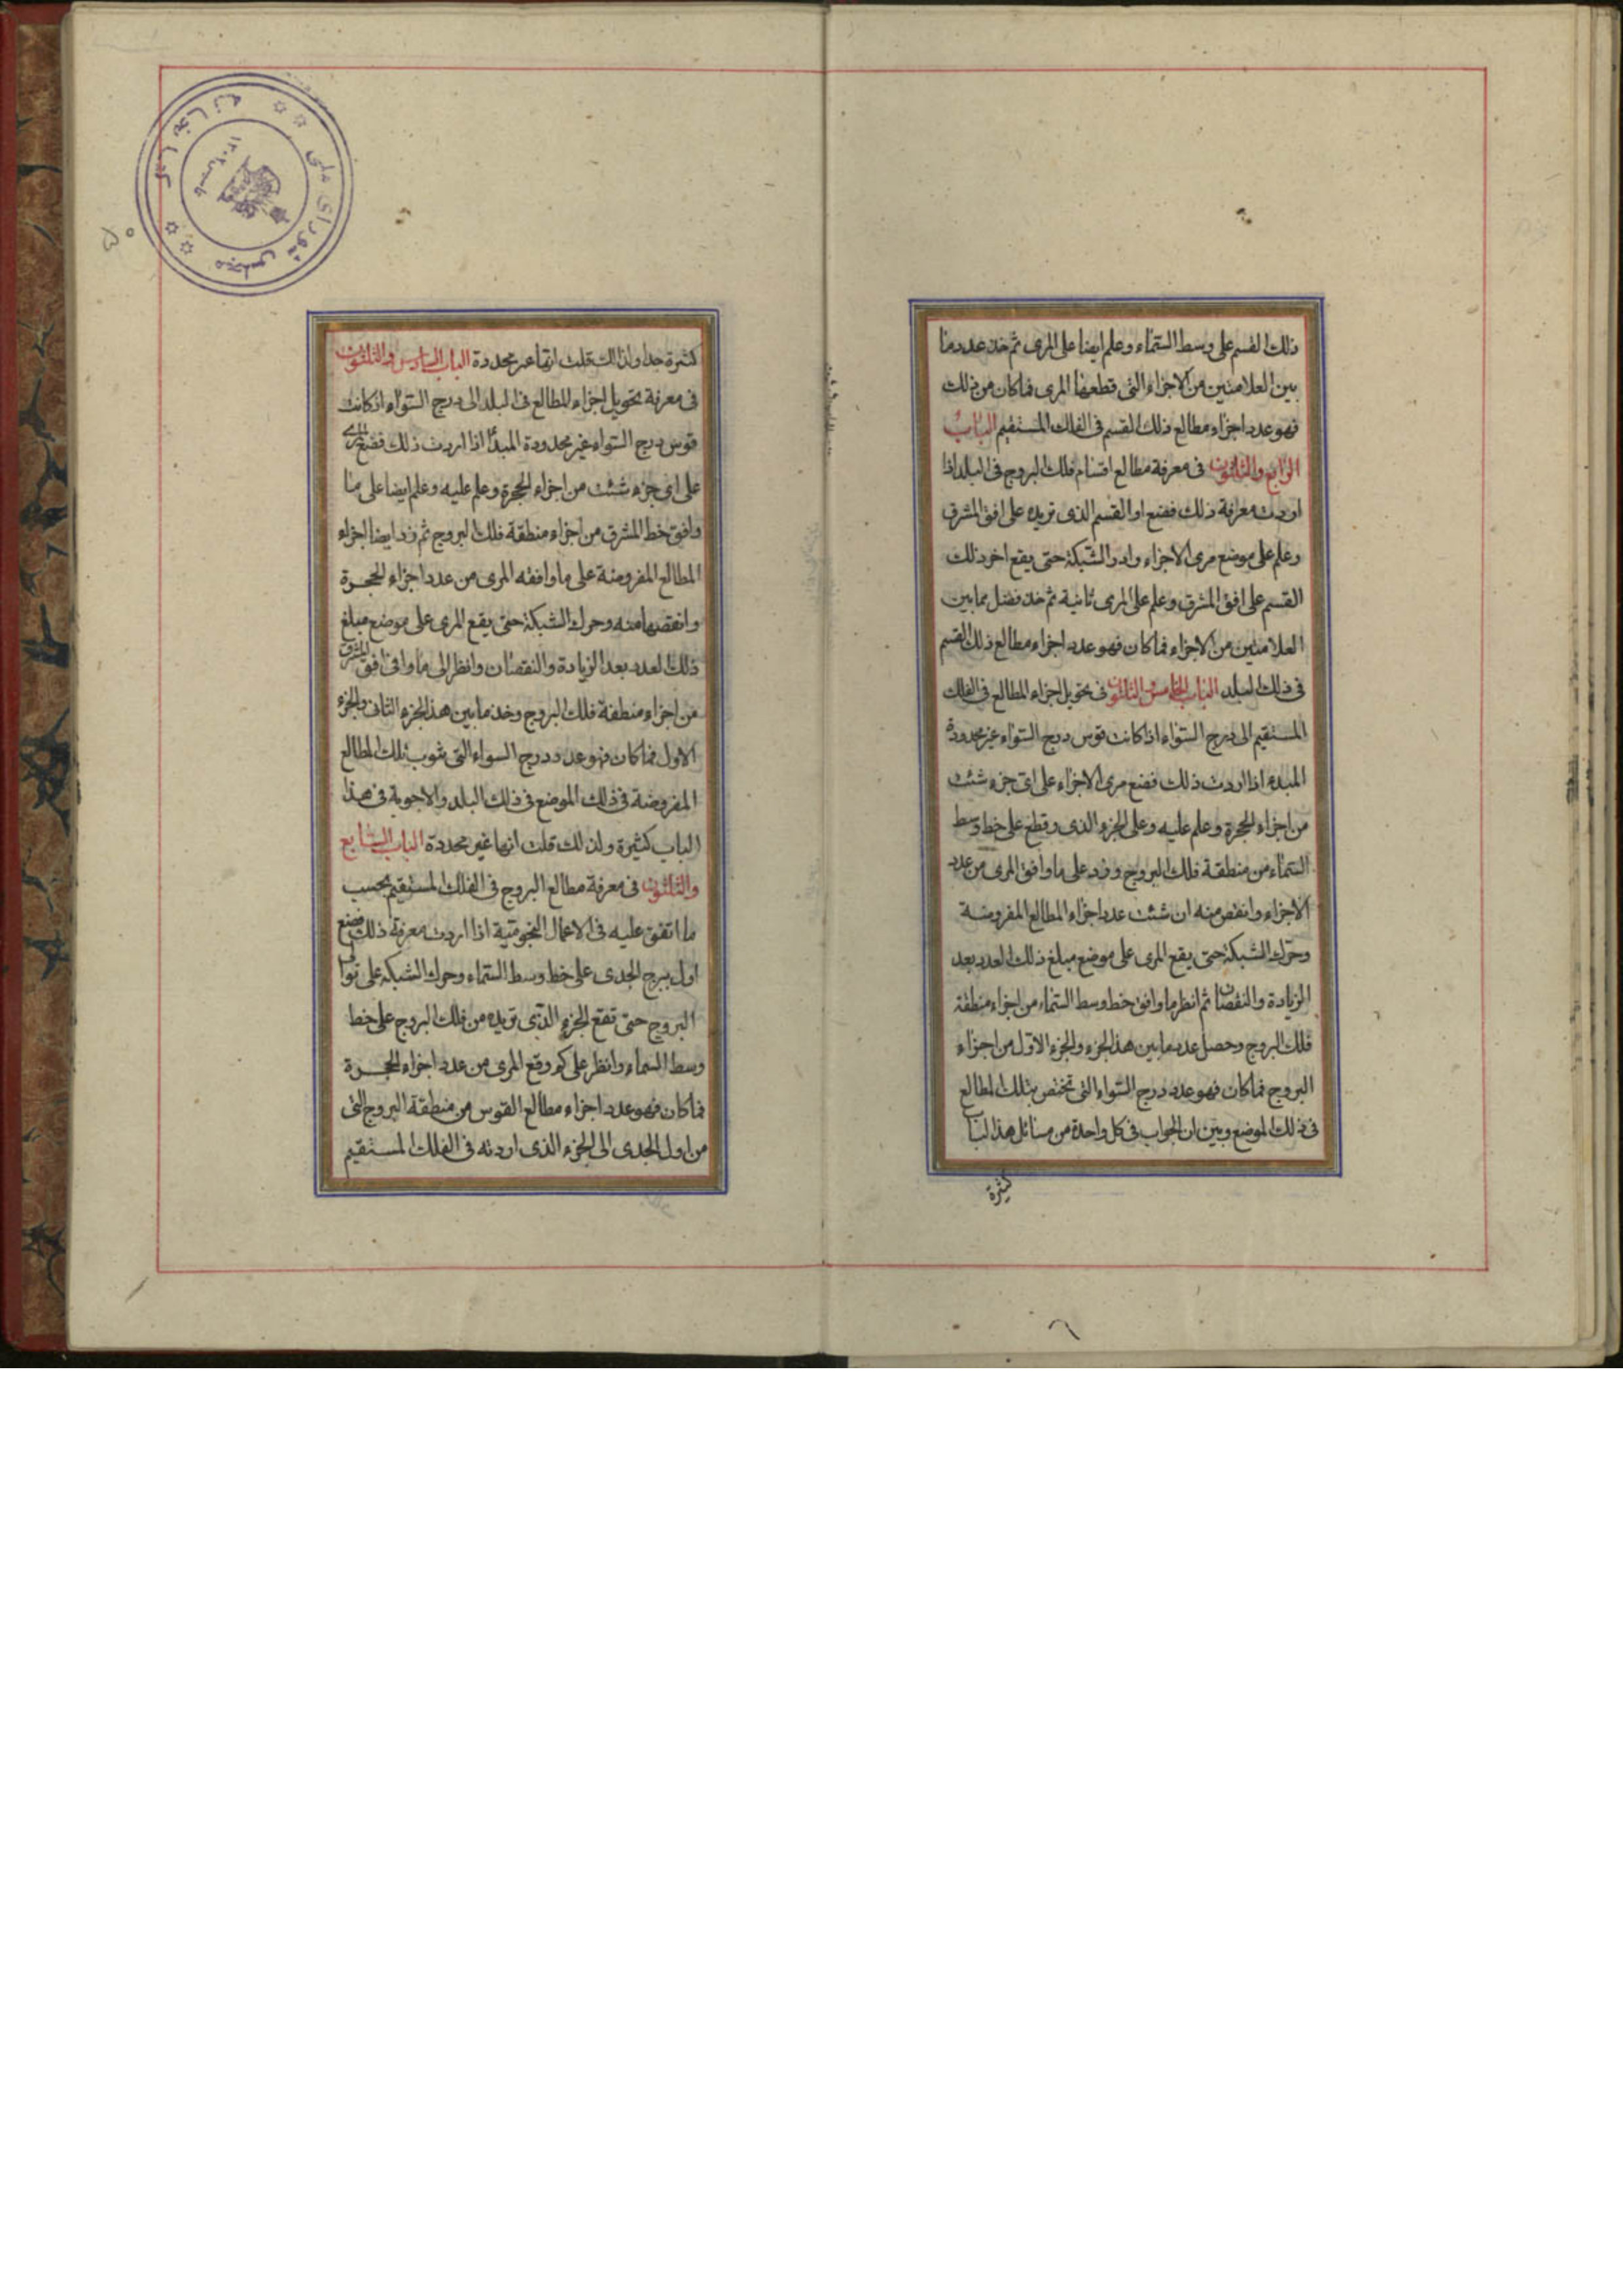 ذلك القسم على وسط السّماء وعلم ايضا على المرى ثم خذ عدد ما
بين العلامتين من الاجزاء التى قطعها المرى فماكان من ذلك
فهو عدد اجزاء مطالع ذلك القسم فى الفلك المستقيم الباب
الرابع والثلثون فى معرفة مطالع اقسام فلك البروج فى البلد اذا
اردت معرفة ذلك فضع اول القسم الذى تريده على افق المشرق
وعلم على موضع مرى الاجزاء وادر الشّبكة حتى يقع اخر ذلك
القسم على افق المشرق وعلم على المرى ثانية ثم خذ فضل مابين
العلامتين من الاجزاء فماكان فهو عدد اجزاء مطالع ذلك القسم
فى ذلك البلد الباب الخامس والثلثون فى تحويل اجزاء المطالع فى الفلك
المستقيم الى درج السّواء اذا كانت قوس درج السّواء غير محدودة
المبدء اذا اردت ذلك فضع مرى الاجزاء على اى جزء شئت
من اجزاء الحجرة وعلم عليه وعلى الجزء الذى وقع على خط وسط
السّماء من منطقة فلك البروج وزد على ما وافق المرى من عدد
الاجزاء وانقص منه ان شئت عدد اجزاء المطالع المفروضة
وحرّك الشبكة حتى يقع المرى على موضع مبلغ ذلك العدد بعد
الزيادة والنقصان ثم انظر ما وافق خط وسط السّماء من اجزاء منطقة
فلك البروج وحصل عدد مابين هذا الجزء والجزء الاوّل من اجزاء
البروج فماكان فهو عدد درج السّواء التى تختص بتلك المطالع
فى ذلك الموضع وبيّن ان الجواب فى كل واحدة من مسائل هذا الباب
كثيرة
كثيرة جدا ولذلك قلت انها غير محددة الباب السادس والثلثون
فى معرفة تحويل اجزاء المطالع فى البلد الى درج السّواء اذ كانت
قوس درج السّواء غير محدودة المبدأ اذا اردت ذلك فضع المرى
على اى جزء شئت من اجزاء الحجرة وعلم عليه وعلم ايضا على ما
وافق خط المشرق من اجزاء منطقة فلك البروج ثم زد ايضا اجزاء
المطالع المفروضة على ما وافقه المرى من عدد اجزاء الحجرة
وانقصها منه وحرك الشبكة حتى يقع المرى على موضع مبلغ
ذلك العدد بعد الزيادة والنقصان وانظر الى ما وافى افق المشرق
من اجزاء منطقة فلك البروج وخذ مابين هذا الجزء الثانى والجزء
الاول فماكان فهو عدد درج السواء التى تنوب تلك المطالع
المفروضة فى ذلك الموضع فى ذلك البلد والاجوبة فى هذا
الباب كثيرة ولذلك قلت انها غير محددة الباب السابع
والثلثون فى معرفة مطالع البروج فى الفلك المستقيم بحسب
ما اتفق عليه فى الاعمال النجومّية اذا اردت معرفة ذلك فضع
اول برج الجدى على خط وسط السّماء وحرك الشبكة على توالى
البروج حتى تقع الجزء الذى تريده من فلك البروج على خط
وسط السماء وانظر على كم وقع المرى من عدد اجزاء الحجرة
فماكان فهو عدد اجزاء مطالع القوس من منطقة البروج التى
من اول الجدى الى الجزء الذى اردته فى الفلك المستقيم
كتابخانه مجلس شوراى ملى